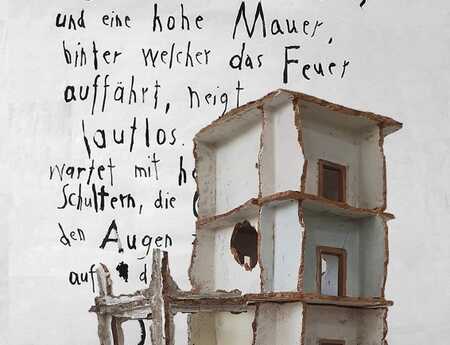 und eine hohe Mauer,
hinter welcher das Feuer
auffährt, neigt
lautlos.
wartet mit
Schultern, die
den Augen
auf